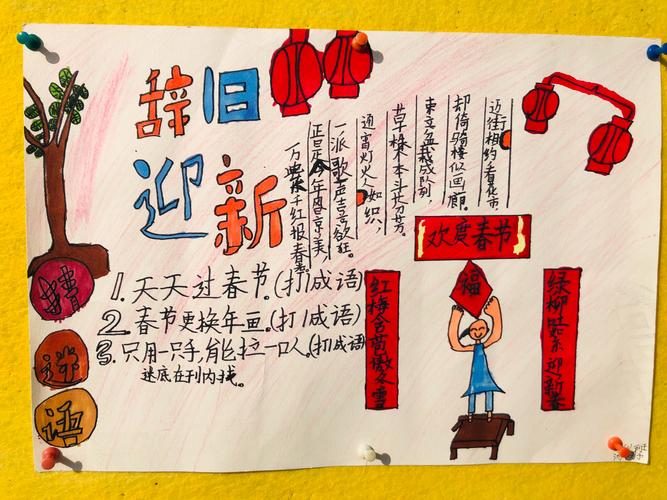 辞旧
迎新
迈街相约看花市,
却倚骑楼似画廊。
束立盆栽成队列,
草株木本斗芬芳。
通宵灯火人如织,
一派歌声喜欲狂。
正是今年风景美
万紫千红报春
猜
谜
语
1.天天过春节。(打1成语)
2.春节更换年画。(打1成语)
3.只用一只手,能拉一口人。(打1成语)
迷底在刊内找。
欢度春节
福
红梅含苞傲冬雪
绿柳吐絮迎新春